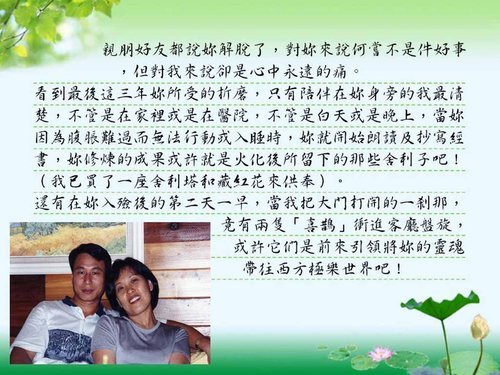 親朋好友都說妳解脫了，對妳來說何嘗不是件好事
，但對我來說卻是心中永遠的痛。
看到最後這三年妳所受的折磨，只有陪伴在妳身旁的我最清
楚，不管是在家裡或是在醫院，不管是白天或是晚上，當妳
因為腹脹難過而無法行動或入睡時，妳就開始朗讀及抄寫經
書，妳修煉的成果或許就是火化後所留下的那些舍利子吧！
（我已買了一座舍利塔和藏紅花來供奉）。
還有在妳入殮後的第二天一早，當我把大門打開的一剎那，
竟有兩隻「喜鵲」衝進客廳盤旋，
或許它們是前來引領將妳的靈魂
帶往西方極樂世界吧！